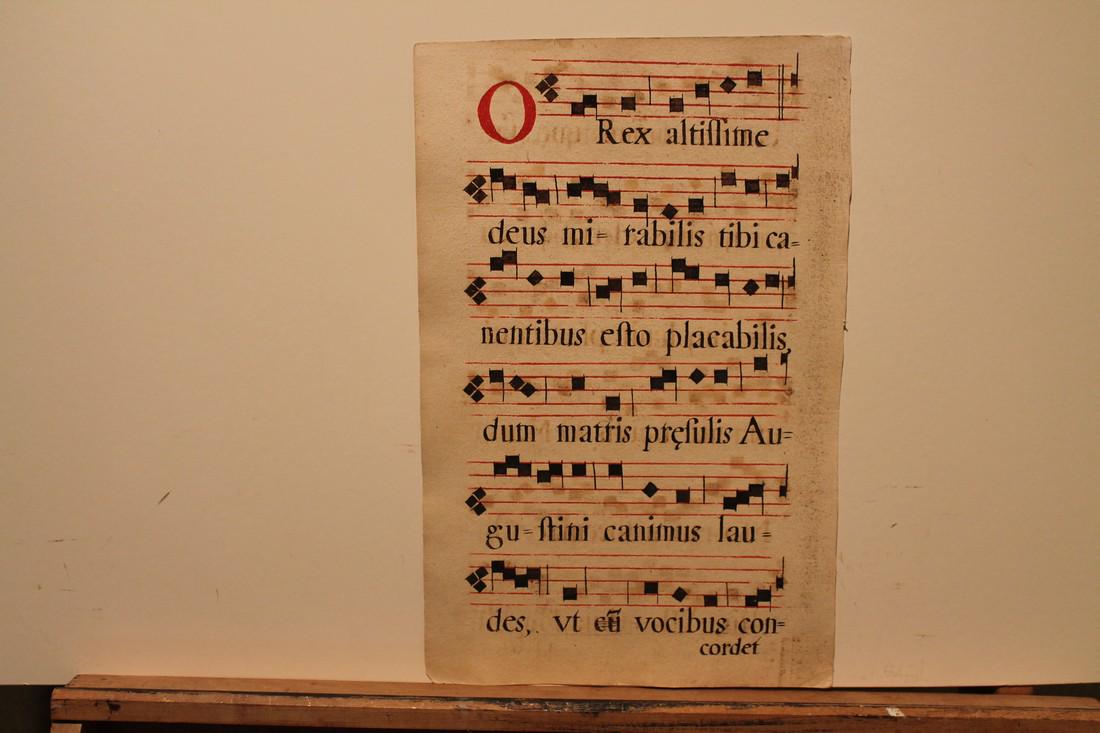 O Rex altiſſime
deus mi= rabilis tibi ca=
nentibus eſto placabilis,
dum matris pręſulis Au=
gu=ſtini canimus lau=
des, vt cū vocibus con=
cordet